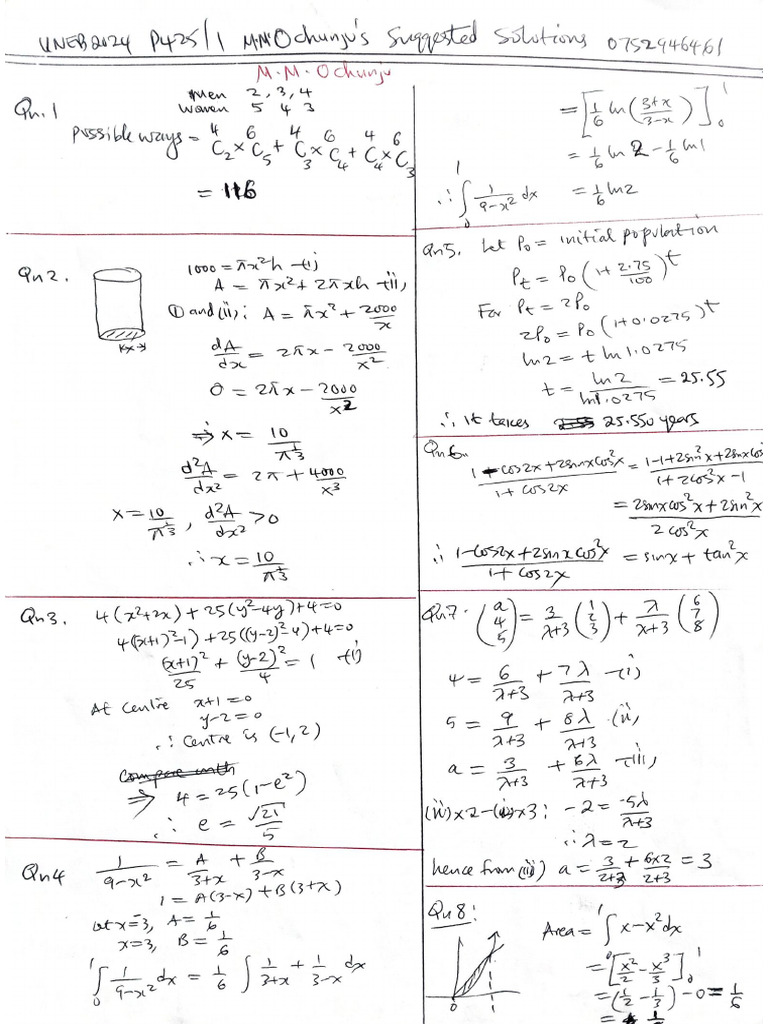 UNEB2024 P425/1 M.M Ochunju's Suggested Solutions 0752946461
M.M. Ochunju
Qn.1
Men 2, 3, 4
Women 5 4 3
possible ways = ⁴C₂ × ⁶C₅ + ⁴C₃ × ⁶C₄ + ⁴C₄ × ⁶C₃
= 116
Qn2.
1000 = πx²h -(i)
A = πx² + 2πxh -(ii)
(i) and (ii): A = πx² + 2000/x
dA/dx = 2πx - 2000/x²
0 = 2πx - 2000/x²
⇒ x = 10/π^(1/3)
d²A/dx² = 2π + 4000/x³
x = 10/π^(1/3), d²A/dx² > 0
∴ x = 10/π^(1/3)
Qn3.
4(x²+2x) + 25(y²-4y) + 4 = 0
4((x+1)²-1) + 25((y-2)²-4) + 4 = 0
(x+1)²/25 + (y-2)²/4 = 1 -(i)
At Centre x+1 = 0
y-2 = 0
∴ Centre is (-1, 2)
Compare with
⇒ 4 = 25(1-e²)
∴ e = √21/5
Qn4
1/(9-x²) = A/(3+x) + B/(3-x)
1 = A(3-x) + B(3+x)
Let x=-3, A = 1/6
x=3, B = 1/6
∫₀¹ 1/(9-x²) dx = 1/6 ∫ 1/(3+x) + 1/(3-x) dx
= [1/6 ln((3+x)/(3-x))]₀¹
= 1/6 ln 2 - 1/6 ln 1
∴ ∫₀¹ 1/(9-x²) dx = 1/6 ln 2
Qn5. Let P₀ = initial population
Pt = P₀(1 + 2.75/100)^t
For Pt = 2P₀
2P₀ = P₀(1+0.0275)^t
ln2 = t ln1.0275
t = ln2/ln1.0275 = 25.55
∴ It takes 25.550 years
Qn6.
(1-cos2x+2sinxcos²x)/(1+cos2x) = (1-1+2sin²x+2sinxcos²x)/(1+2cos²x-1)
= (2sinxcos²x+2sin²x)/(2cos²x)
∴ (1-cos2x+2sinxcos²x)/(1+cos2x) = sinx + tan²x
Qn7. (a 4 5) = 3/(λ+3) (1 2 3) + λ/(λ+3) (6 7 8)
4 = 6/(λ+3) + 7λ/(λ+3) -(i)
5 = 9/(λ+3) + 8λ/(λ+3) (ii)
a = 3/(λ+3) + 6λ/(λ+3) -(iii)
(ii)×2-(i)×3: -2 = -5λ/(λ+3)
∴ λ = 2
hence from (iii) a = 3/(2+3) + 6×2/(2+3) = 3
Qn8:
Area = ∫₀¹ x-x² dx
= [x²/2 - x³/3]₀¹
= (1/2 - 1/3) - 0 = 1/6
0